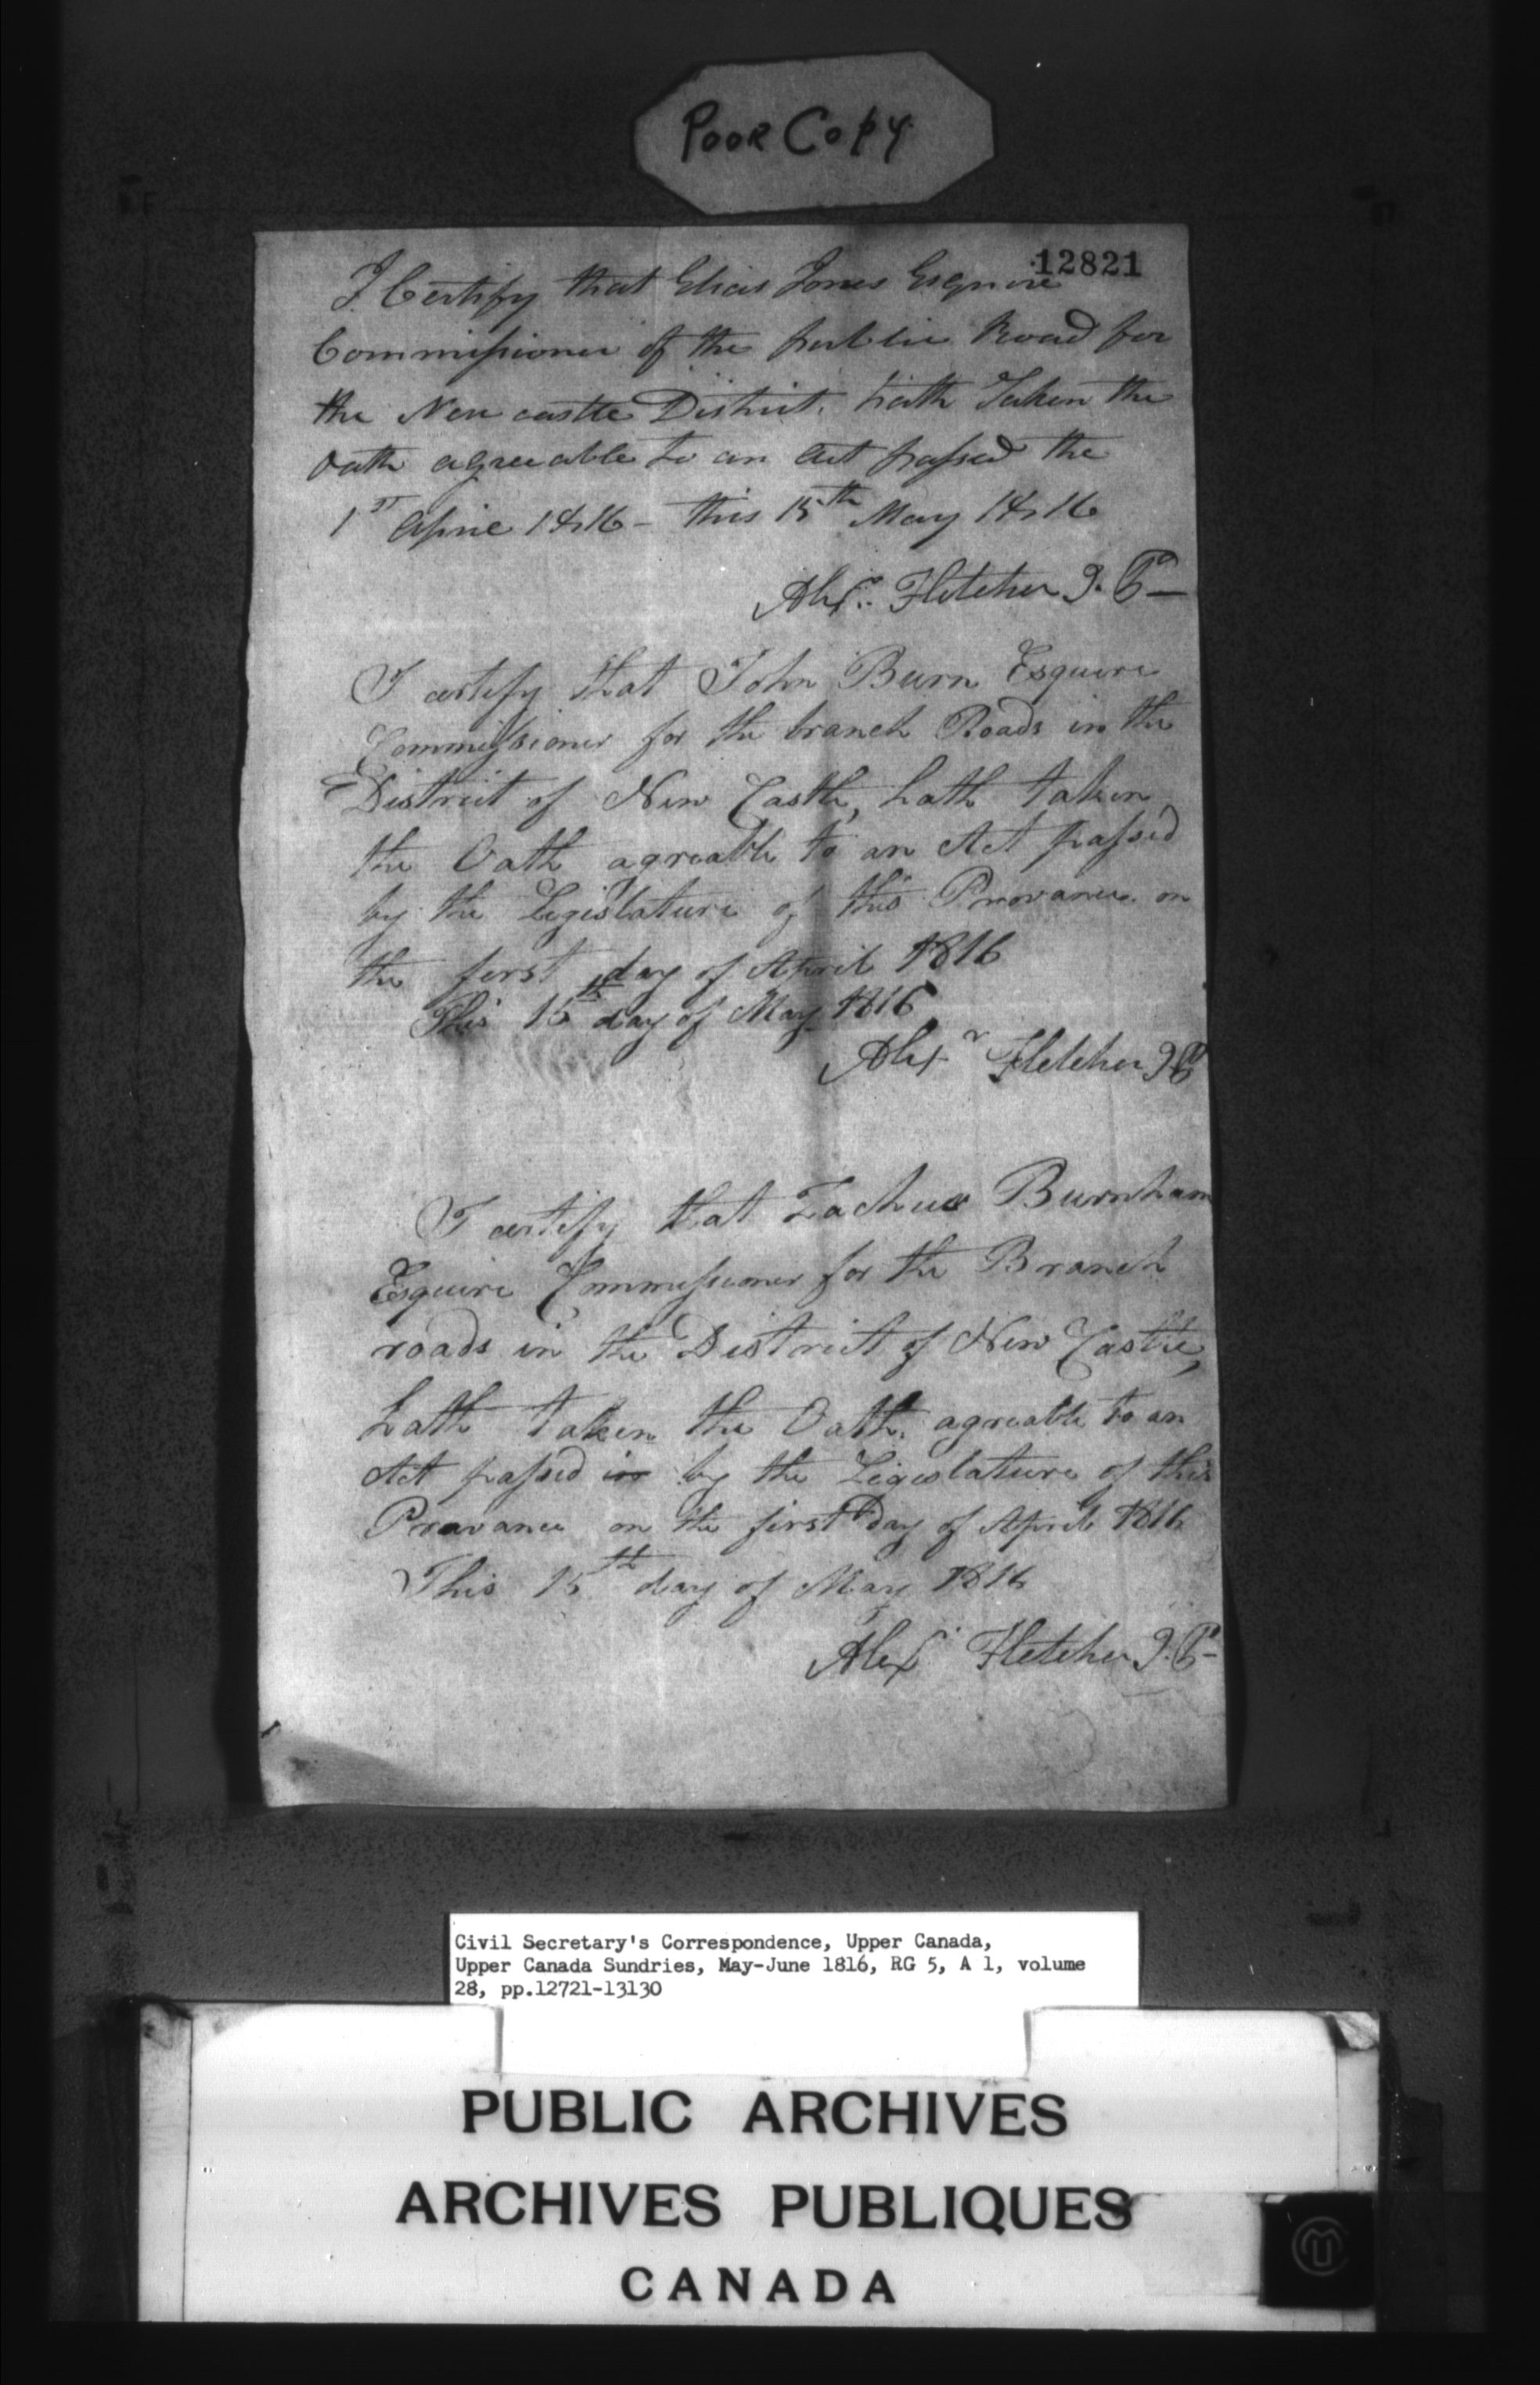 Poor Copy
12821
I Certify that Elias Jones Esquire
Commissioner of the public Road for
the New castle District, hath Taken the
Oath agreeable to an Act passed the
1st April 1816 - this 15th May 1816
Alexr. Fletcher J. P -
I certify that John Burn Esquire
Commissioner for the branch Roads in the
District of New Castle, hath taken
the Oath agreable to an Act passed
by the Legislature of this Provance on
the first day of April 1816
This 15th day of May 1816
Alexr Fletcher J P
I certify that Zacheus Burnham
Esquire Commissioner for the Branch
roads in the District of New Castle,
hath taken the Oath, agreable to an
Act passed in by the Legislature of this
Provance on the first Day of April 1816
This 15th day of May 1816
Alexr Fletcher J. P -
Civil Secretary's Correspondence, Upper Canada,
Upper Canada Sundries, May-June 1816, RG 5, A 1, volume
28, pp.12721-13130
PUBLIC ARCHIVES
ARCHIVES PUBLIQUES
CANADA